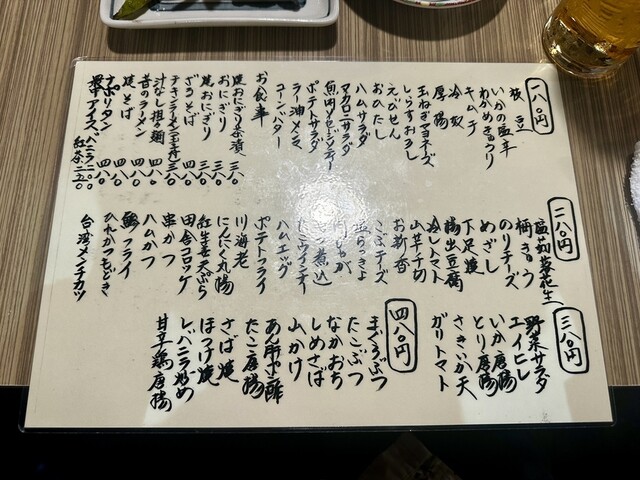 一八〇円
枝豆
いかの塩辛
わかめきゅうり
キムチ
冷奴
厚揚
玉ねぎマヨネーズ
しらすおろし
えびせん
おひたし
ハムサラダ
マカロニサラダ
魚肉ソーセージ
ポテトサラダ
ラー油メンマ
コーンバター
お食事
焼おにぎり茶漬 三八〇
おにぎり 一八〇
焼おにぎり 三八〇
ざるそば 四八〇
チキンラーメン(玉子丼) 三八〇
汁なし担々麺 四八〇
昔のラーメン 四八〇
焼そば 四八〇
ナポリタン 四八〇
最中アイス バニラ 二八〇
紅茶 二五〇
二八〇円
塩茹落花生
梅きゅう
のりチーズ
めざし
下足焼
揚出豆腐
冷しトマト
山芋千切
お新香
こぶチーズ
塩らっきょ
もつ煮込
たこウインナー
ハムエッグ
ポテトフライ
川海老
にんにく丸揚
紅生姜天ぷら
田舎コロッケ
串かつ
ハムかつ
鯵フライ
ひれかつもどき
台湾メンチカツ
三八〇円
野菜サラダ
エイヒレ
いか唐揚
とり唐揚
さきいか天
ガリトマト
四八〇円
まぐろぶつ
たこぶつ
なかおち
しめさば
山かけ
あん肝ポン酢
たこ唐揚
さば焼
ほっけ焼
レバニラ炒め
甘辛鶏唐揚